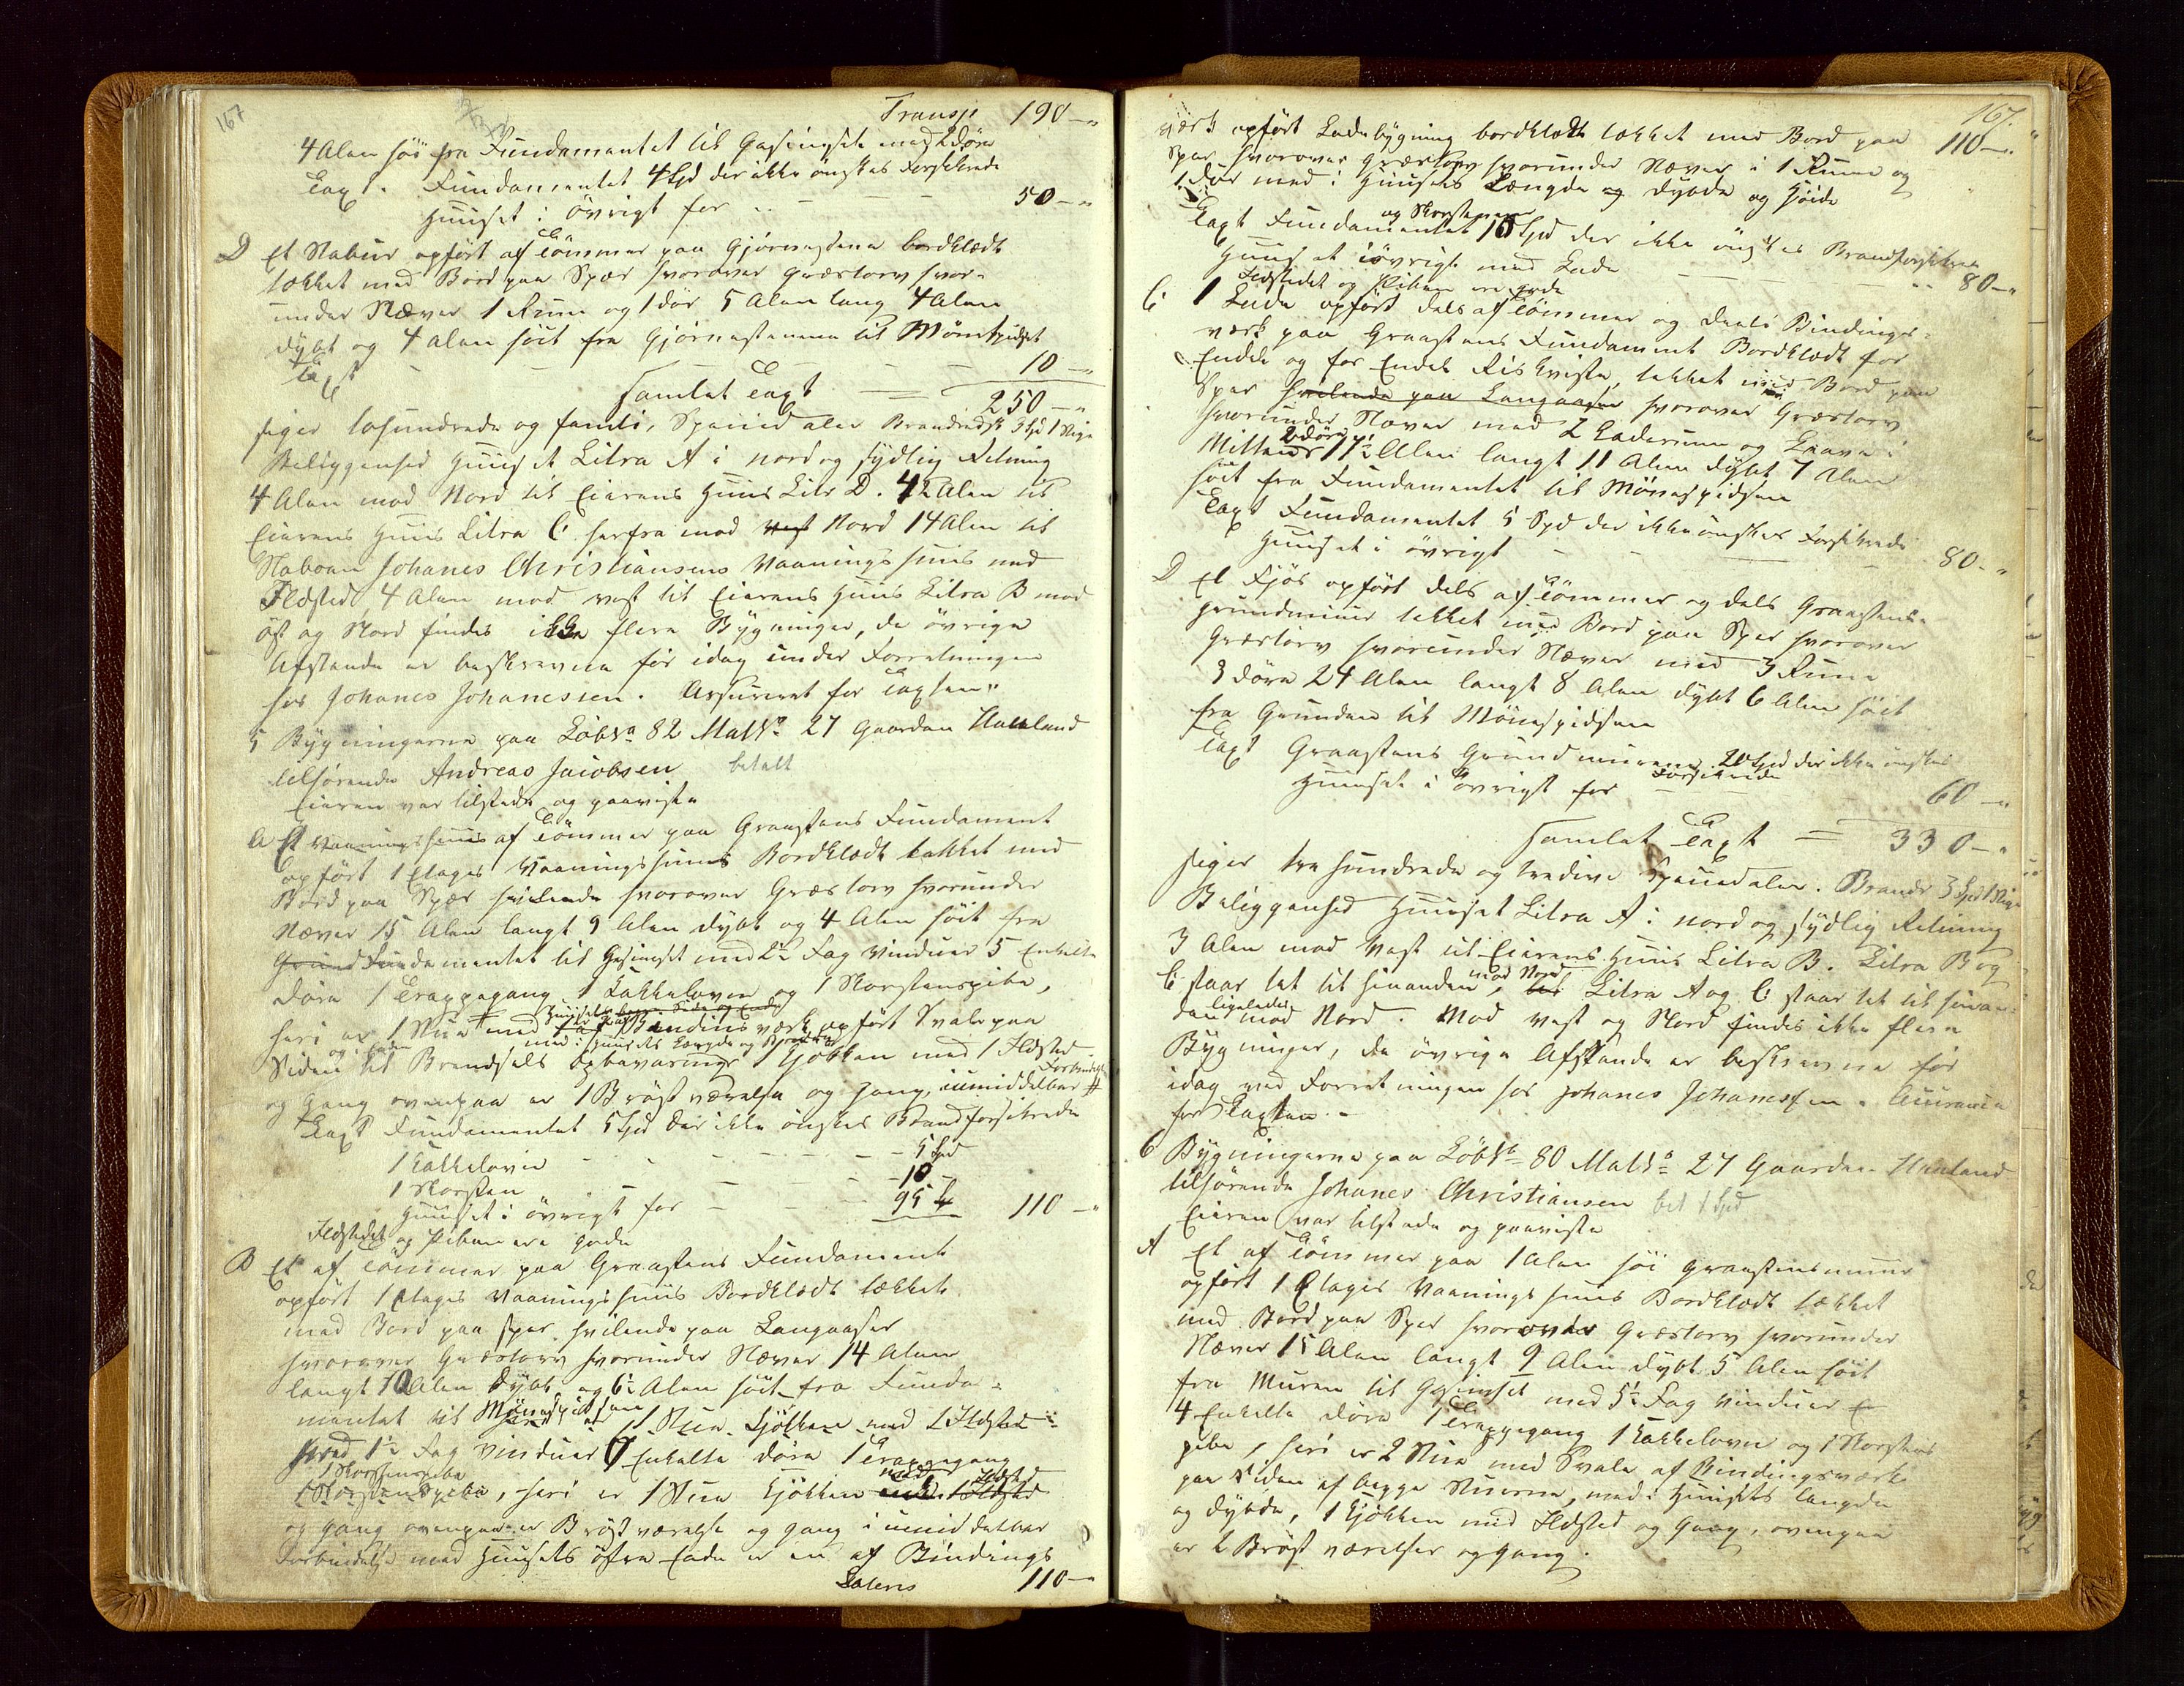 167
Transp 190 -"
4 Alen höi fra Fundamentet til Gesimset med 2 döre
Taxt. Fundamentet 4 Spd der ikke önskes Forsikrede
Huuset i övrigt for - - - 50 -"
D Et Stabur opfört af Tömmer paa Hjörnestene bordklædt
tækket med Bord paa Spær hvorover Græstorv hvor-
under Næver 1 Rum og 1 dör 5 Alen lang 4 Alen
dybt og 4 Alen höit fra Hjörnestenene til Mönespidset
Taxt - - - 10 -"
Samlet Taxt = 250 -"
siger tohundrede og femti, Speciedaler 3 Spd 1
Beliggenhed Huuset Litra A i nord og sydlig Retning
4 Alen mod Nord til Eierens Huus Litr D. 42 Alen til
Eierens Huus Litra C herfra mod vest Nord 14 Alen til
Naboen Johanes Christiansens Vaaningshuus med
Ildsted, 4 Alen mod vest til Eierens Huus Litra B mod
öst og Nord findes ikke flere Bygninger, de övrige
Afstande er beskrevne för idag under Forretningen
hos Johanes Johanessen. Assureret for Taxten"
5 Bygningerne paa LöbNo 82 MatNo 27 Gaarden Haaland
tilhörende Andreas Jacobsen betalt
Eieren var tilstede og paaviste
A Et Vaaningshuus af Tömmer paa Graastens Fundament
opfört 1 Etages Vaaningshuus Bordklædt tækket med
Bord paa Spær hvilende hvorover Græstorv hvorunder
Næver 15 Alen langt 9 Alen dybt og 4 Alen höit fra
Grund Fundamentet til Gesimset med 2½ Fag Vinduer 5 Enkelte
döre 1 Trappegang 1 Kakkelovn og 1 Skorstenspibe,
Huusets begge Sider og Ende
heri er 1 Stue med Bindingsværk opfört Svale paa
med i Huusets Længde og
Siden til Brendsels Opbevaring 1 Kjökken med 1 Ildsted
Forbindelse
og Gang ovenpaa er 1 Bröstværelse og gang, iumiddelbar #
Taxt Fundamentet 5 Spd der ikke önskes Brandforsikrede
1 Kakkelovn - - - 5 Spd
1 Skorsten - - 10 -
Huuset i övrigt for - - 95 - 110 -"
Ildstedet og Piben ere gode
B Et af Tömmer paa Graastens Fundament
opfört 1 Etages Vaaningshuus Bordklædt tækket
med Bord paa Spær hvilende paa Langaaser
hvorover Græstorv hvorunder Næver 14 Alen
langt 10 Alen dybt og 6½ Alen höit fra Funda-
mentet til Mönespidsen 1 Stue Kjökken med 1 Ildsted
med 1½ Fag Vinduer 7 Enkelte döre 1 Trappegang
1 Skorstenspibe med Ildsted
1 Skorstenspibe, heri er 1 Stue Kjökken med 1 Ildsted
og gang ovenpaa er Bröstværelse og gang i umiddelbar
Forbindelse med Huusets öfre Ende er en af Bindings
Lateris 110 -
167.
værk opfört Ladebygning bordklædt tækket med Bord paa 110 -"
Spær hvorover Græstorv hvorunder Næver i 1 Rum og
1 dör med i Huusets Længde og dybde og höide
og Skorstenen
Taxt Fundamentet 15 Spd der ikke önskes Brandforsikrede
Huuset iövrigt med Lade - - - 80 -"
Ildstedet og Piben ere gode
C 1 Lade opfört dels af Tömmer og deels Bindings-
værk paa Graastens Fundament Bordklædt for
Enden og for Enden Riskviste, tækket med Bord paa
Spær hvilende paa Langaaser hvorover Græstorv
hvorunder Næver med 2 Laderum og Laave i
2 döre
Mitten 17½ Alen langt 11 Alen dybt 7 Alen
höit fra Fundamentet til Mönespidsen
Taxt Fundamentet 5 Spd der ikke önskes Forsikrede
Huuset i övrigt - - - 80 -"
D Et Fjös opfört dels af Tömmer og dels Graastens-
grundmuur tækket med Bord paa Spær hvorover
Græstorv hvorunder Næver med 3 Rum
3 döre 24 Alen langt 8 Alen dybt 6 Alen höit
fra Grunden til Mönespidsen
Taxt Graastens Grundmuurene 20 Spd der ikke önskes
Forsikrede
Huuset i övrigt for - - 60 -"
Samlet Taxt = 330 -"
siger trehundrede og tredive Speciedaler. Brands 3 Spd 1
Beliggenhed Huuset Litra A i nord og sydlig Retning
3 Alen mod Vest til Eierens Huus Litra B. Litra B og
mod Nord
C staar tæt til hinanden, Litra A og C staar tæt til hinan-
ligeledes
den mod Nord. Mod Vest og Nord findes ikke flere
Bygninger, de övrige Afstande er beskrevne för
idag ved Forretningen hos Johanes Johanessen.
for Taxten.-
6 Bygningerne paa LöbNo 80 MatNo 27 Gaarden Haaland
tilhörende Johanes Christiansen bet 1 Spd
Eieren var tilstede og paaviste
A Et af Tömmer paa 1 Alen höi Graastensmuur
opfört 1 Etages Vaaningshuus Bordklædt tækket
med Bord paa Spær hvorover Græstorv hvorunder
Næver 15 Alen langt 9 Alen dybt 5 Alen höit
fra Muren til Gesimset med 5½ Fag Vinduer
4 Enkelte döre 1 Trappegang 1 Kakkelovn og 1 Skorstens
pibe, heri er 2 Stue med Svale af Bindingsværk
paa Siden af begge Stuerne, med i Huusets længde
og dybde, 1 Kjökken med Ildsted og Gang, ovenpaa
er 2 Bröstværelser og gang.